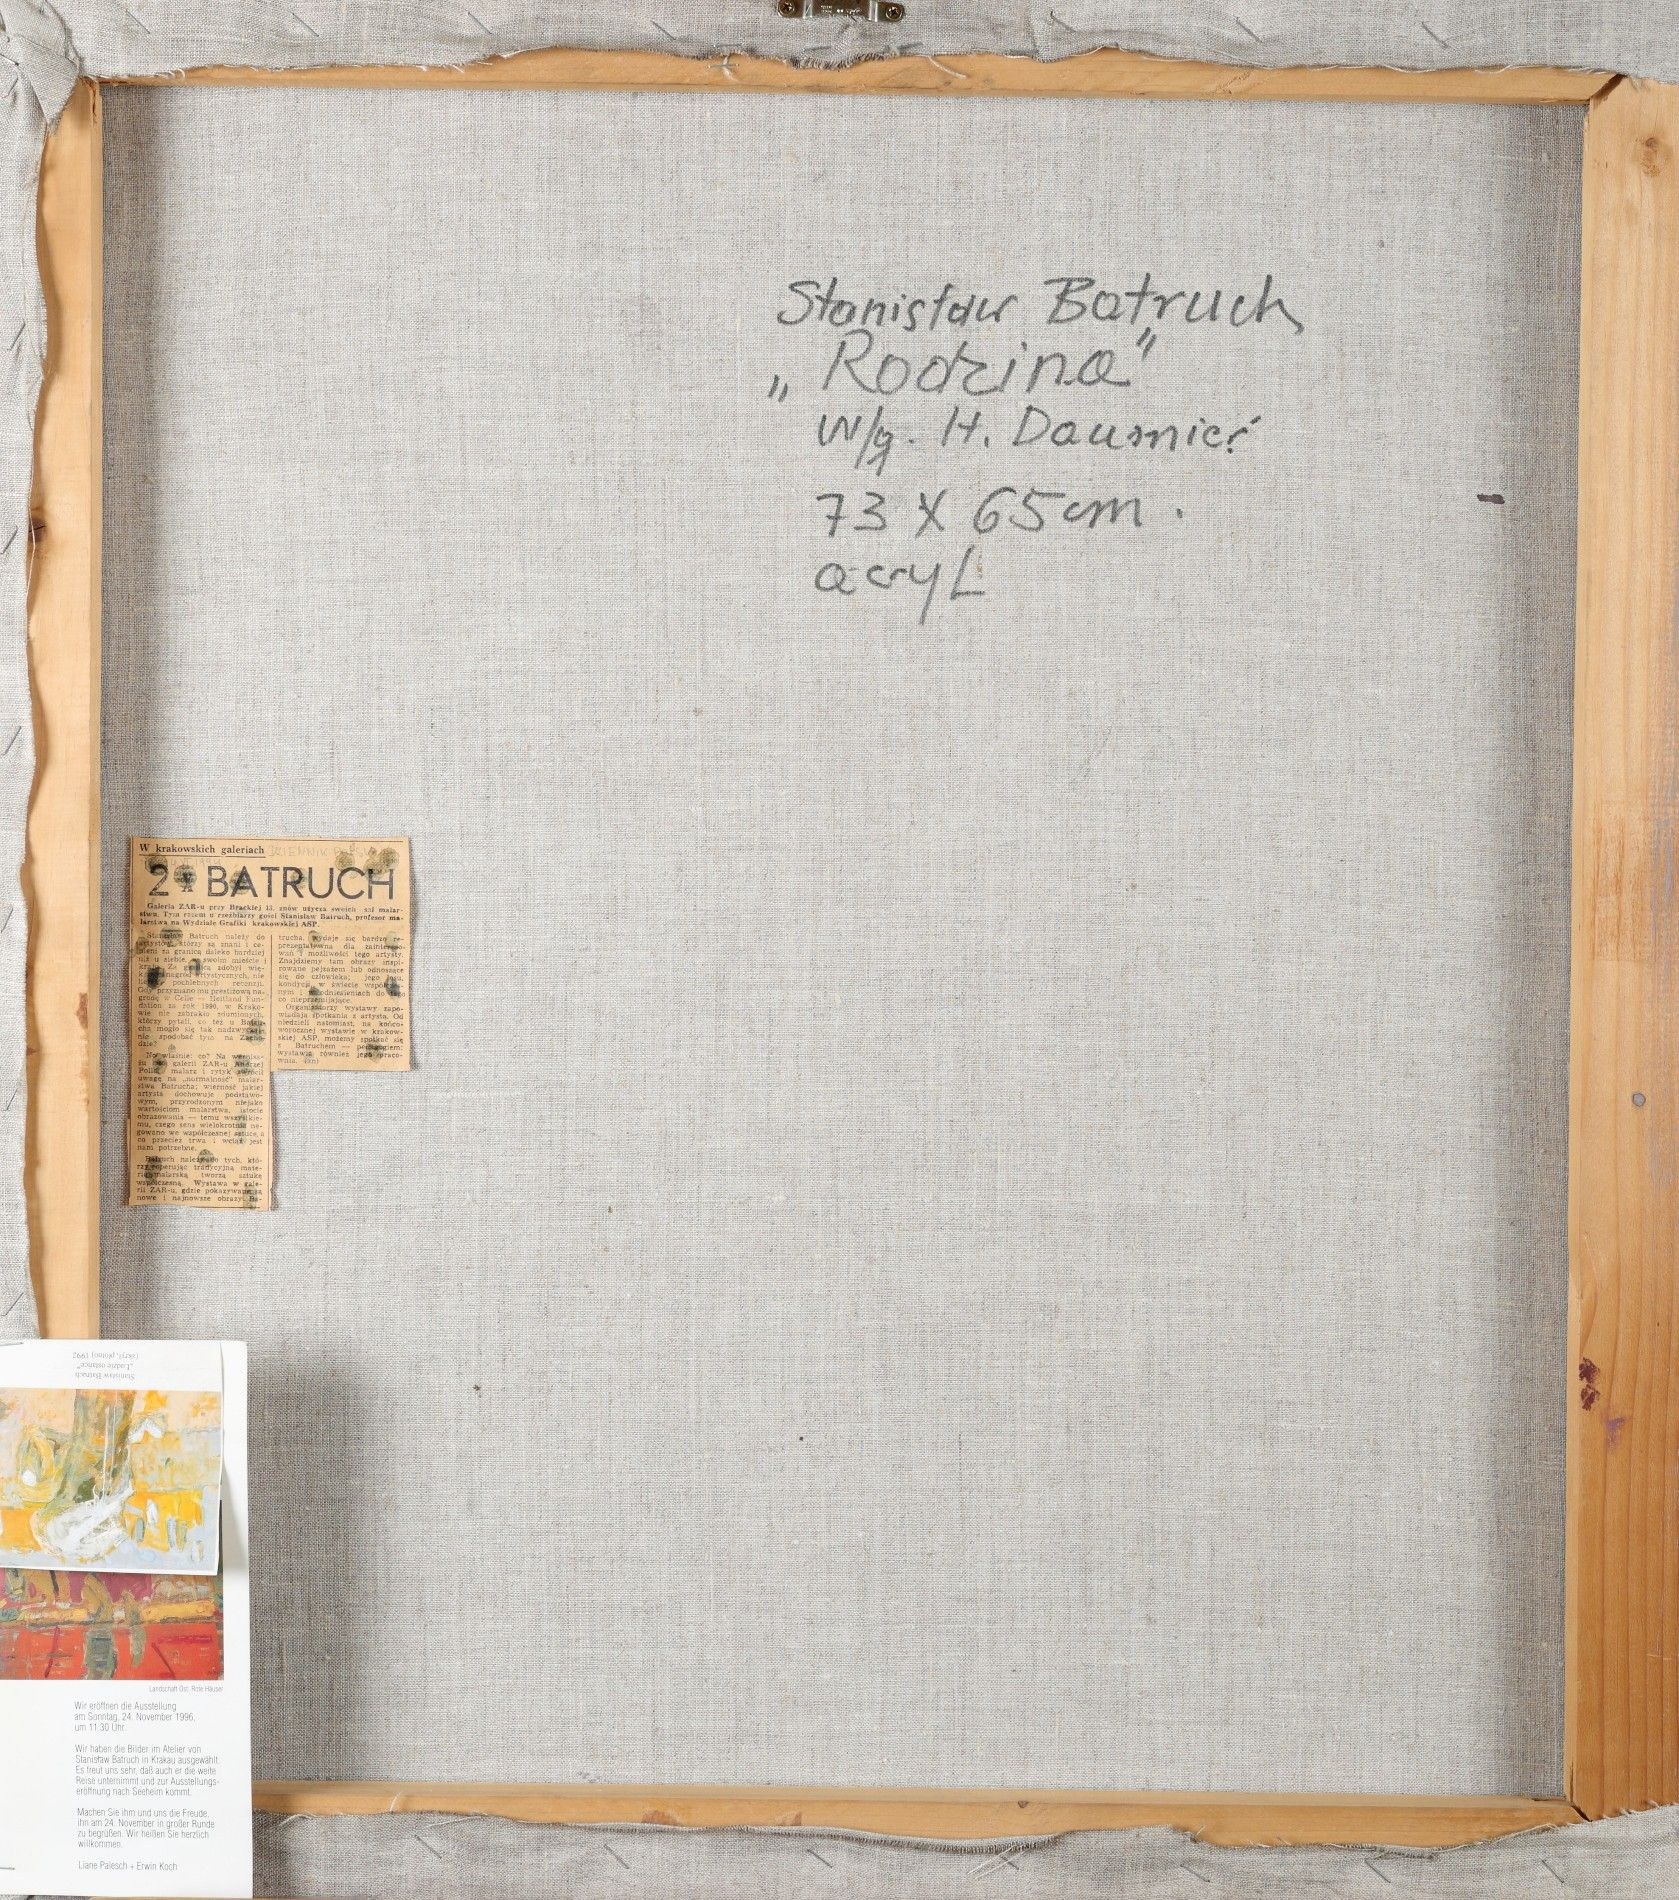 Stanisław Batruch
„Rodzina"
w/g. H. Daumier
73 X 65 cm.
acryl
W krakowskich galeriach DZIENNIK
2 x BATRUCH
Galeria ZAR-u przy Brackiej 13. znów użycza swoich sal malar-
stwu. Tym razem u rzeźbiarzy gości Stanisław Batruch, profesor ma-
larstwa na Wydziale Grafiki krakowskiej ASP.
Stanisław Batruch należy do
artystów, którzy są znani i ce-
nieni za granicą daleko bardziej
niż u siebie, w swoim mieście i
kraju. Za granicą zdobył wię-
kszość nagród artystycznych, nie
pochlebnych recenzji.
Gdy przyznano mu prestiżową na-
grodę w Celle — Heitland Fun-
dation za rok 1990, w Krako-
wie nie zabrakło zdumionych,
którzy pytali, co też u Batru-
cha mogło się tak nadzwyczaj-
nie spodobać tym na Zacho-
dzie?
No właśnie: co? Na wernisa-
żu w galerii ZAR-u Andrzej
Pollo, malarz i krytyk zwrócił
uwagę na „normalność" malar-
stwa Batrucha; wierność jakiej
artysta dochowuje podstawo-
wym, przyrodzonym niejako
wartościom malarstwa, istocie
obrazowania — temu wszystkie-
mu, czego sens wielokrotnie ne-
gowano we współczesnej sztuce, a
co przecież trwa i wciąż jest
nam potrzebne.
Batruch należy do tych, któ-
rzy operując tradycyjną mate-
rią malarską tworzą sztukę
współczesną. Wystawa w gale-
rii ZAR-u, gdzie pokazywane są
nowe i najnowsze obrazy Ba-
trucha, wydaje się bardzo re-
prezentatywna dla zaintereso-
wań i możliwości tego artysty.
Znajdziemy tam obrazy inspi-
rowane pejzażem lub odnoszące
się do człowieka; jego losu,
kondycji w świecie współczes-
nym i w odniesieniach do tego
co nieprzemijające.
Organizatorzy wystawy zapo-
wiadają spotkania z artystą. Od
niedzieli natomiast, na końco-
worocznej wystawie w krakow-
skiej ASP, możemy spotkać się
z Batruchem — pedagogiem:
wystawia również jego praco-
wnia.
Stanisław Batruch
„Ludzie ostańce"
(akryl, płótno) 1992
Landschaft Ost. Rote Häuser
Wir eröffnen die Ausstellung
am Sonntag, 24. November 1996,
um 11.30 Uhr.
Wir haben die Bilder im Atelier von
Stanisław Batruch in Krakau ausgewählt.
Es freut uns sehr, daß auch er die weite
Reise unternimmt und zur Ausstellungs-
eröffnung nach Seeheim kommt.
Machen Sie ihm und uns die Freude,
ihn am 24. November in großer Runde
zu begrüßen. Wir heißen Sie herzlich
willkommen.
Liane Palesch + Erwin Koch